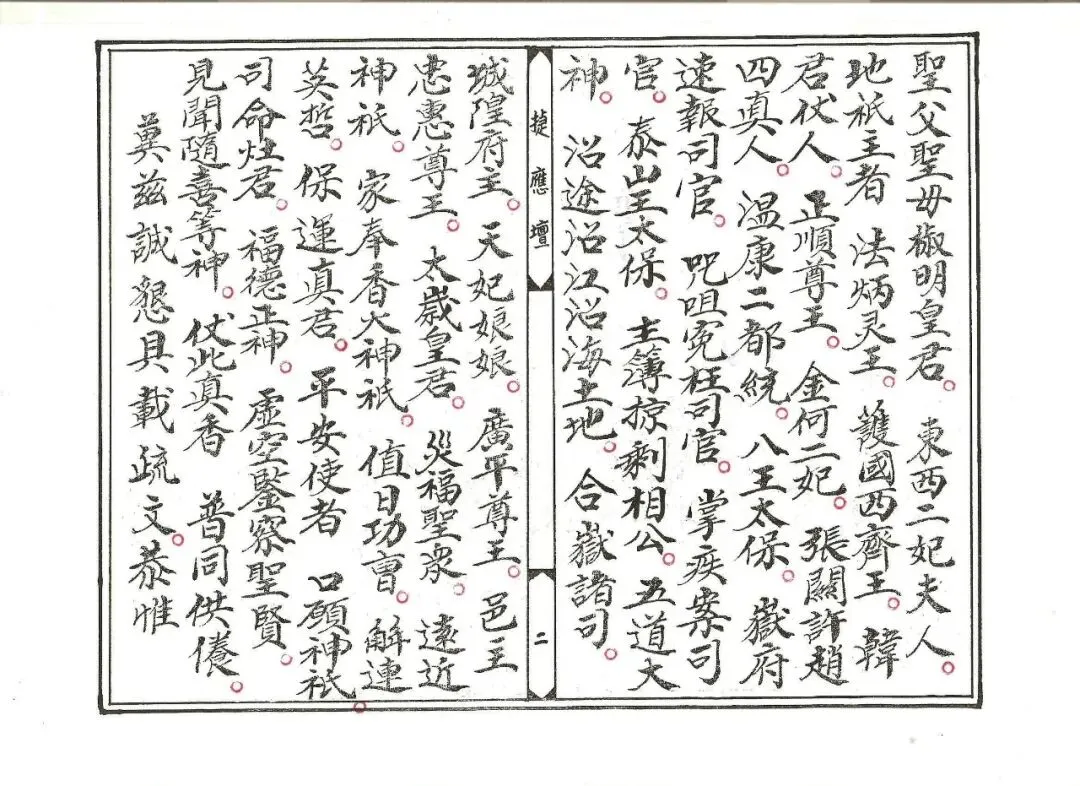 聖父聖母椒明皇君。東西二妃夫人。
地祇主者 法炳灵王。護國西齊王。韓
君仗人。正順尊王。金何二妃。張關許趙
四真人。温康二都統。八王太保。嶽府
速報司官。咒咀冤枉司官。掌疾案司
官。泰山王太保。主簿掠剩相公。五道大
神。沿途沿江沿海土地。合嶽諸司。
捷應壇
二
城隍府主。天妃娘娘。廣平尊王。邑主
忠惠尊王。太歲皇君。災福聖衆。遠近
神祇。家奉香火神祇。值日功曹。解連
英哲。保運真君。平安使者 口願神祇。
司命灶君。福德正神。虛空鑒察聖賢。
見聞隨喜等神。仗此真香 普同供養。
奠兹誠懇具載疏文。恭惟